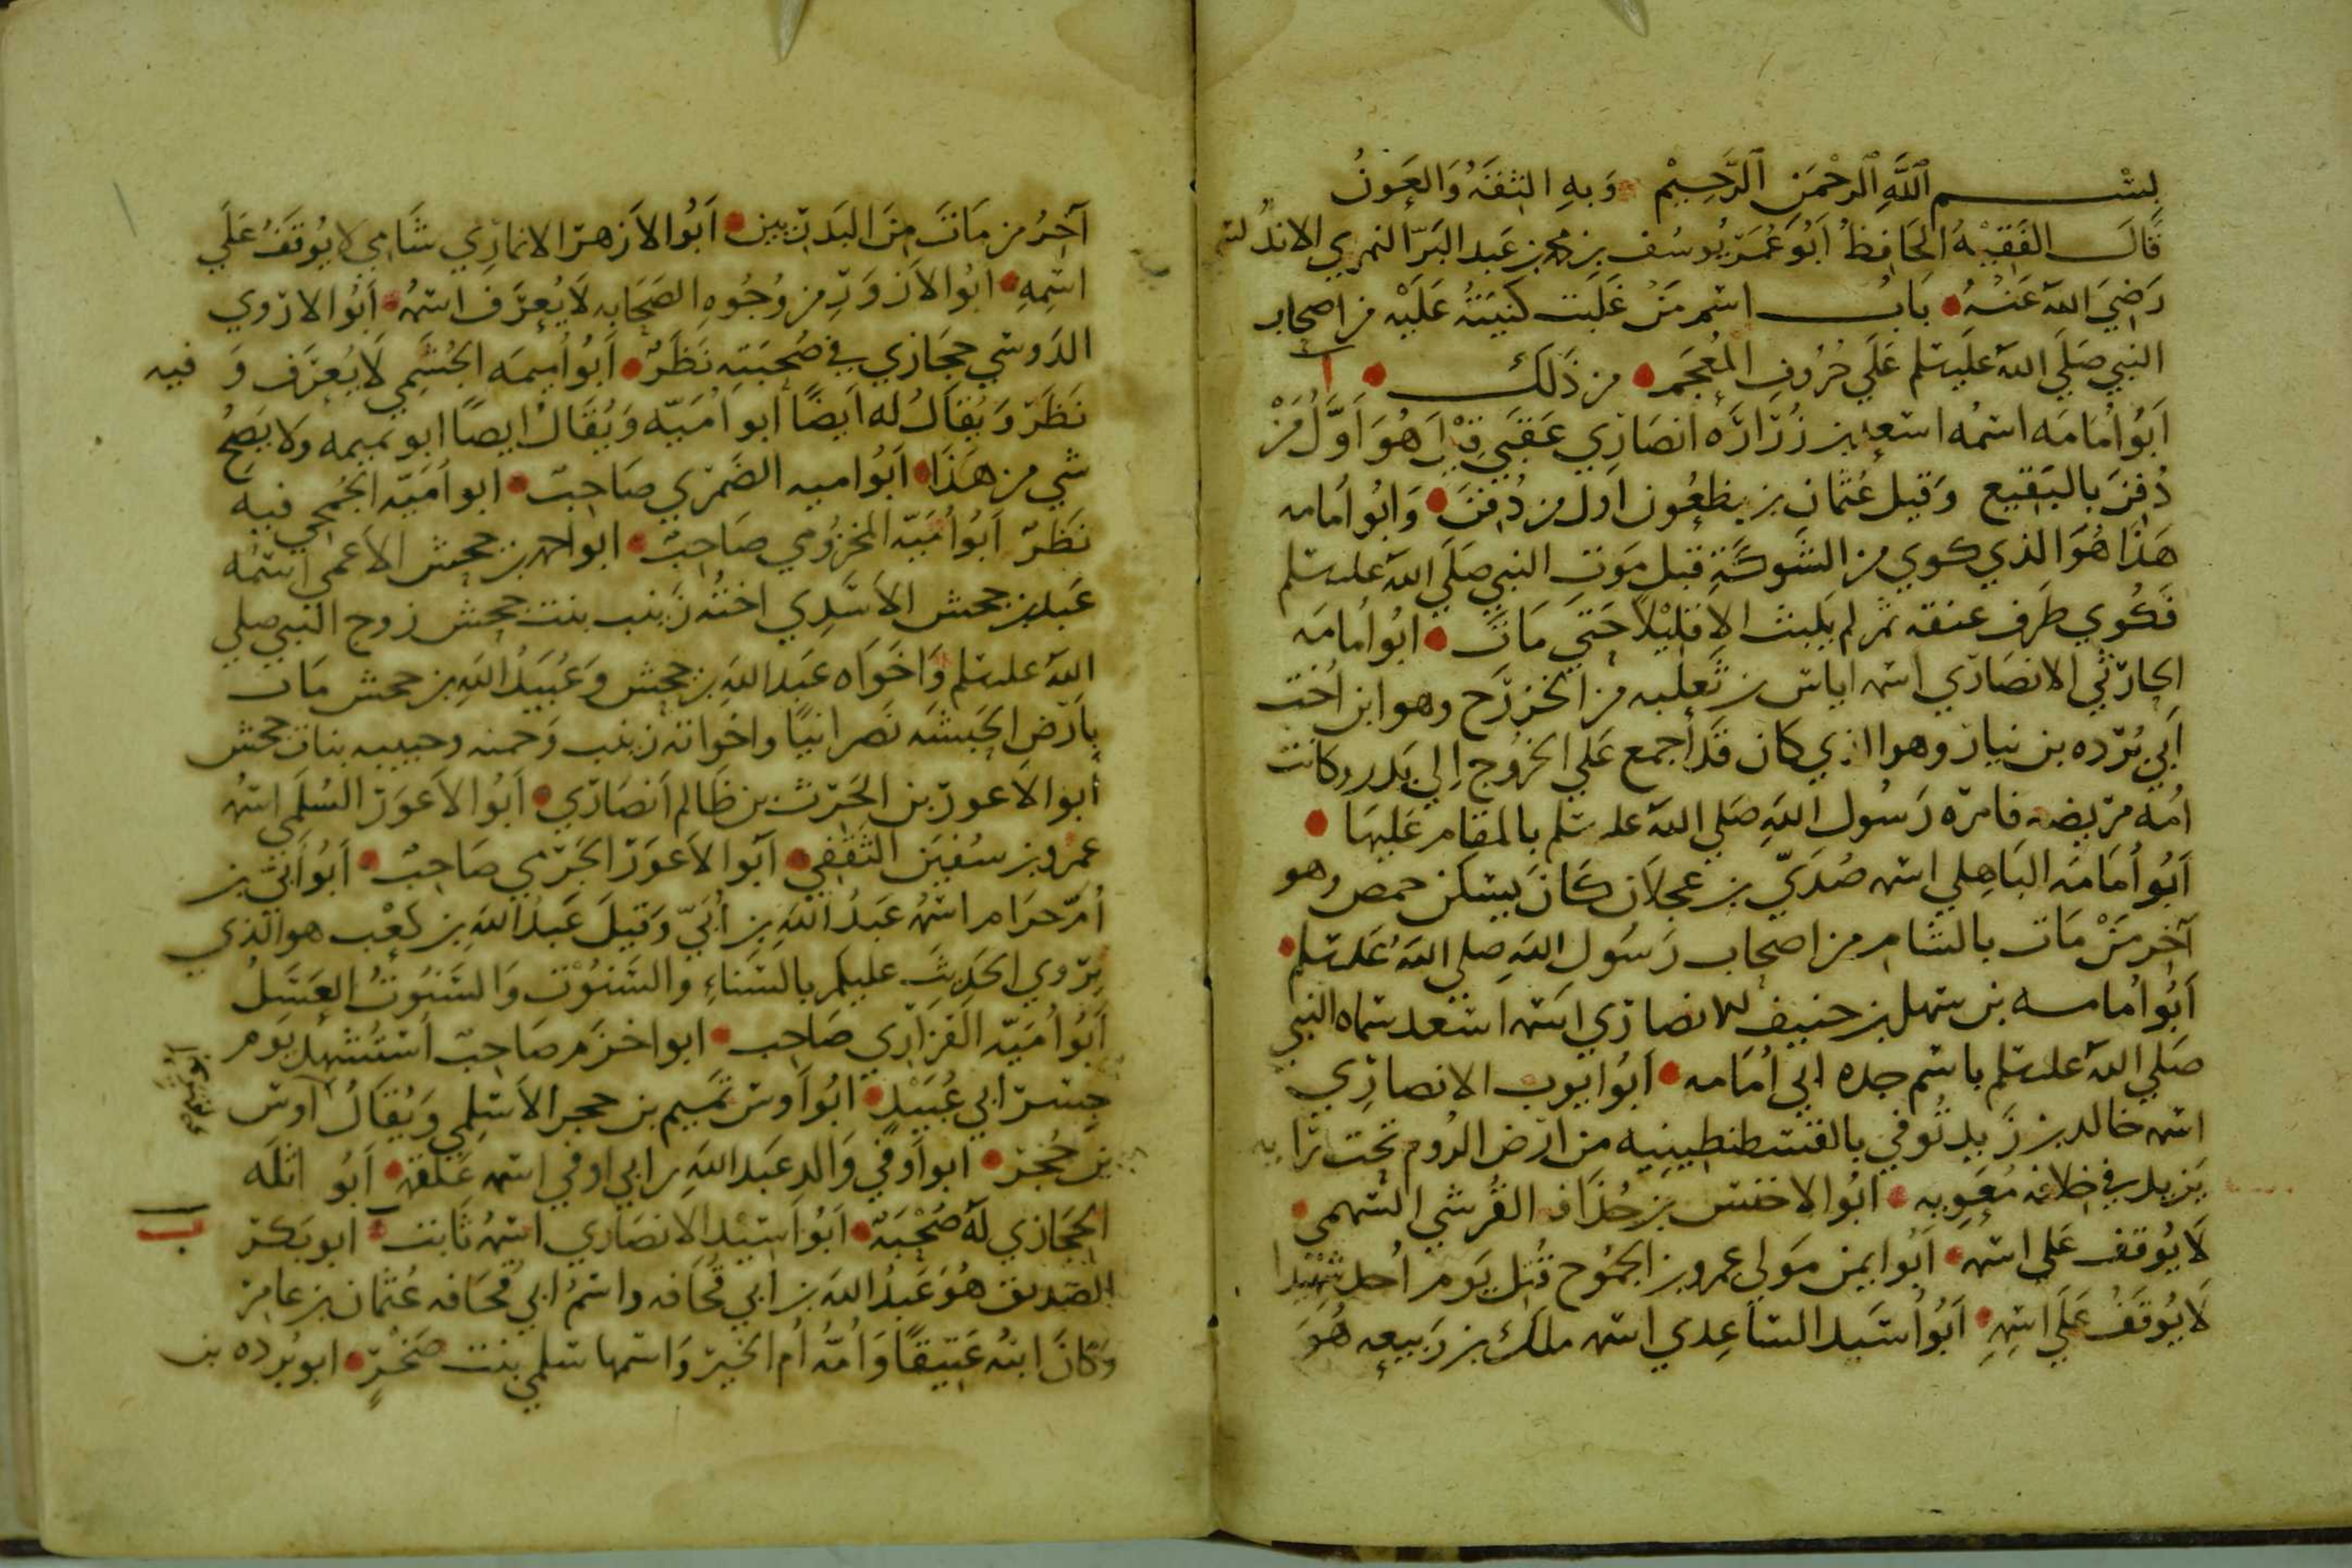 بسم الله الرحمن الرحيم وبه الثقة والعون
قال الفقيه الحافظ ابو عمر يوسف بن محمد بن عبد البر النمري الاندلسي
رضي الله عنه باب اسم من غلبت كنيته عليه من اصحاب
النبي صلى الله عليه وسلم علي حروف المعجم من ذلك
ا
ابو امامه اسمه اسعد بن زرارة انصاري عقبي قيل هو اول من
دفن بالبقيع وقيل عثمان بن مظعون اول من دفن وابو امامه
هذا هو الذي كوي من الشوكة قبل موت النبي صلي الله عليه وسلم
فكوي طرف عنقه ثم لم يلبث الا قليلا حتي مات ابو امامه
الحارثي الانصاري اسمه اياس بن ثعلبه من الخزرج وهو ابن اخت
ابي برده بن نيار وهو الذي كان قد اجمع علي الخروج الي بدر وكانت
امه مريضه فامره رسول الله صلي الله عليه وسلم بالمقام عليها
ابو امامه الباهلي اسمه صدي بن عجلان كان يسكن حمص وهو
آخر من مات بالشام من اصحاب رسول الله صلي الله عليه وسلم
ابو امامه بن سهل بن حنيف الانصاري اسمه اسعد سماه النبي
صلي الله عليه وسلم باسم جده ابي امامه ابو ايوب الانصاري
اسمه خالد بن زيد توفي بالقسطنطينيه من ارض الروم تحت راية
يزيد في خلافه معويه ابو الاخنس بن حذافه القرشي السهمي
لا يوقف علي اسمه ابو ايمن مولي عمرو بن الجموح قتل يوم احد شهيدا
لا يوقف علي اسمه ابو اسيد الساعدي اسمه ملك بن ربيعه هو
آخر من مات من البدريين ابو الازهر الانماري شامي لا يوقف علي
اسمه ابو الازور من وجوه الصحابه لا يعرف اسمه ابو الاروي
الدوسي حجازي في صحبته نظر ابو اميمه الجشمي لا يعرف و فيه
نظر ويقال له ايضا ابو اميه ويقال ايضا ابو تميمه ولا يصح
شي من هذا ابو اميه الضمري صاحب ابو اميه الجمحي فيه
نظر ابو اميه المخزومي صاحب ابو احمد بن جحش الاعمي اسمه
عبد بن جحش الاسدي اخته زينب بنت جحش زوج النبي صلي
الله عليه وسلم واخواه عبد الله بن جحش وعبيد الله بن جحش مات
بارض الحبشه نصرانيا واخواته زينب وحمنه وحبيبه بنات جحش
ابو الاعور بن الحرث بن ظالم انصاري ابو الاعور السلمي اسمه
عمرو بن سفين الثقفي ابو الاعور الجرمي صاحب ابو ابي بن
ام حرام اسمه عبد الله بن ابي وقيل عبد الله بن كعب هو الذي
يروي الحديث عليكم بالسناء والسنوت والسنوت العسل
ابو اميه الفزاري صاحب ابو اخزم صاحب استشهد يوم
جسر ابي عبيد ابو اوس تميم بن حجر الاسلمي ويقال اوس
بن حجر ابو اوفي والد عبد الله بن ابي اوفي اسمه علقمه ابو اثله
الحجازي له صحبه ابو اسيد الانصاري اسمه ثابت ابو بكر
ب
الصديق هو عبد الله بن ابي قحافه واسم ابي قحافه عثمان بن عامر
وكان اسمه عتيقا وامه ام الخير واسمها سلمي بنت صخر ابو برده بن